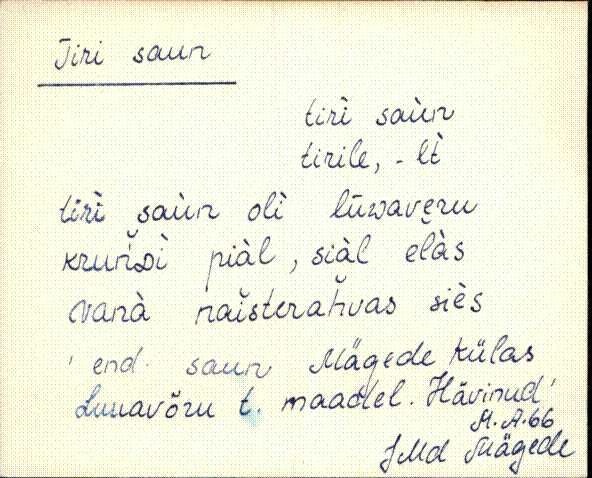 Tiri saun
tiri saùn
tirile, - lt̀
tiri saùn olì lūwaveru
kruńDì piàl, siàl elàs
vanà naišterahvas siès
' end. saun Mägede külas
Luuavõru t. maadel. Hävinud'
M. A. 66
JMd Mägede